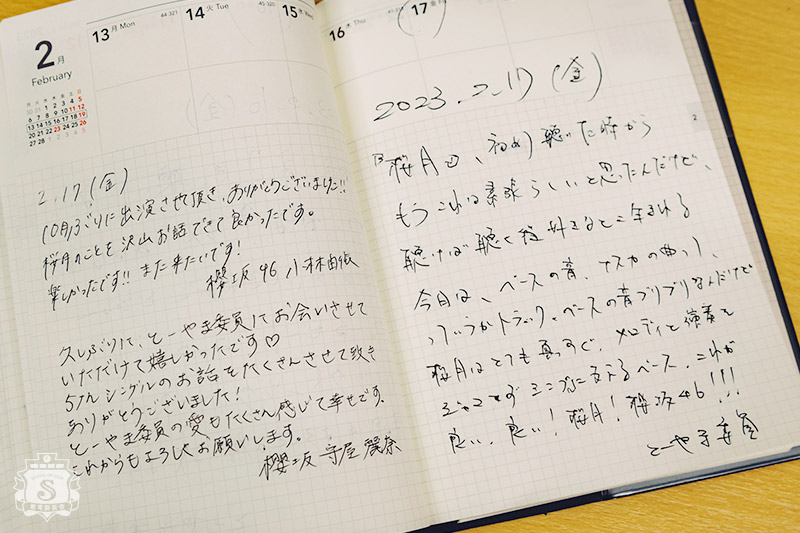 2月
February
13 月 Mon
44-321
14 火 Tue
45-320
15 水 Wed
16 木 Thu
17 金 Fri
2.17(金)
10月ぶりに出演させて頂き、ありがとうございました!!
桜月のことを沢山お話できて良かったです。
楽しかったです!! また来たいです!
櫻坂46 小林由依
久しぶりに、とーやま委員にお会いさせて
いただけて嬉しかったです♡
5thシングルのお話をたくさんさせて頂き
ありがとうございました!
とーやま委員の愛もたくさん感じて幸せです。
これからもよろしくお願いします。
櫻坂 守屋麗奈
2023.2.17(金)
『桜月』は、初めて聴いた時から
もうこれは素晴らしいと思ったんだけど、
聴けば聴く程好きなとこ生まれる
今日は、ベースの音、ナスカの曲って、
っていうかトラック、ベースの音ブリブリなんだけど
桜月はとても真っすぐ、メロディと演奏を
シンプルに支えるベース、これが
良い、良い!桜月!櫻坂46!!!
とーやま委員
S